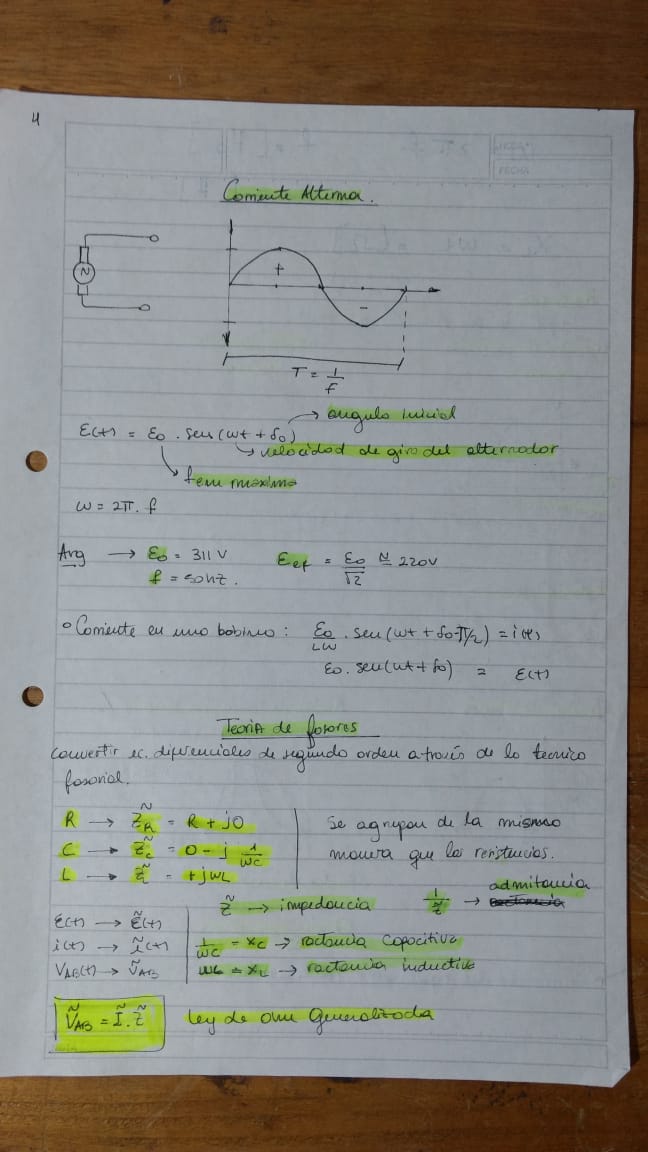 4
FECHA
Corriente Alterna.
+
-
T = 1/f
→ angulo inicial
ε(t) = ε0 . sen(wt + δ0)
→ velocidad de giro del alternador
fem maxima
ω = 2π . f
Arg → ε0 = 311 V Eef = ε0/√2 ≅ 220V
f = 50hz.
Corriente en una bobina: ε0/Lω . sen(wt + δ0 - π/2) = i(t)
ε0 . sen(wt + δ0) = ε(t)
Teoria de fasores
convertir ec. diferenciales de segundo orden a través de la tecnica
fasorial.
R → Z̃R = R + j0 Se agrupan de la misma
C → Z̃c = 0 - j 1/ωC manera que las resistencias.
L → Z̃L = +jωL
Z̃ → impedancia 1/Z̃ → admitancia
ε(t) → ε̃(t)
i(t) → ĩ(t) 1/ωC = Xc → ractancia capacitiva
VAB(t) → ṼAB ωL = XL → ractancia inductiva
ṼAB = Ĩ . Z̃ Ley de ohm Generalizada